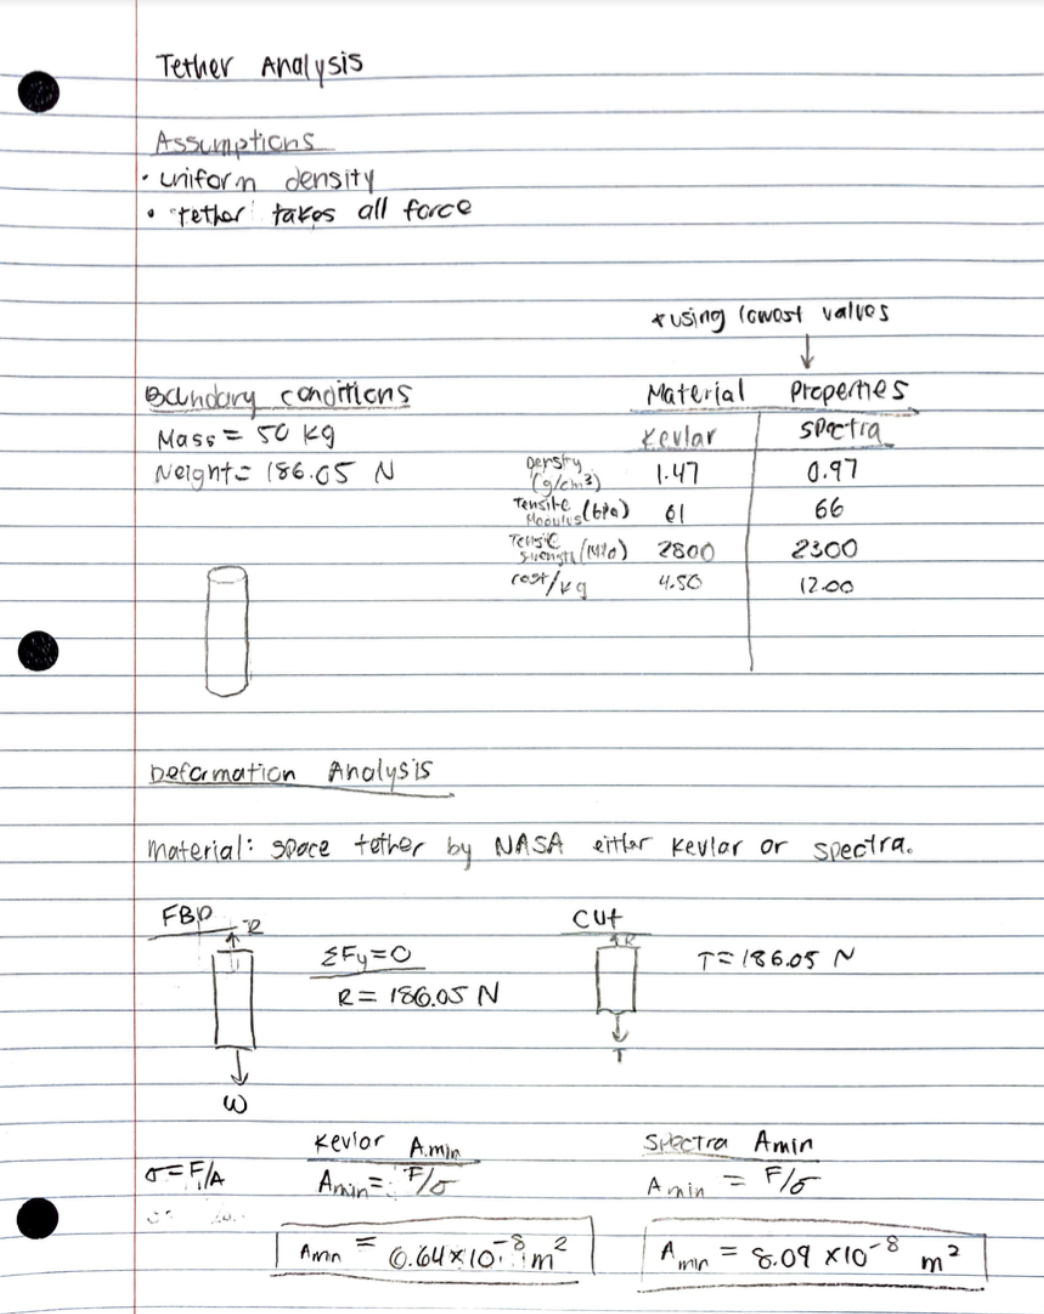 Tether Analysis
Assumptions
• uniform density
• tether takes all force
* using lowest values
Boundary conditions
Material Properties
Mass = 50 kg
Kevlar Spectra
Weight = 186.05 N
Density (g/cm³) 1.47 0.97
Tensile Modulus (GPa) 61 66
Tensile Strength (MPa) 2800 2300
cost/kg 4.50 12.00
Deformation Analysis
Material: space tether by NASA either Kevlar or spectra.
FBD
R
ΣFy=0
R = 186.05 N
W
Cut
R
T = 186.05 N
T
σ=F/A
Kevlar Amin
Amin = F/σ
Amin = 6.64 × 10⁻⁸ m²
Spectra Amin
Amin = F/σ
Amin = 8.09 × 10⁻⁸ m²